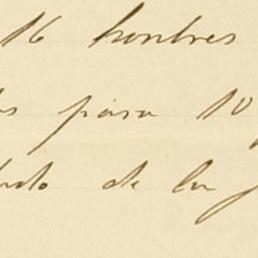 16 hombres
para 10
de la